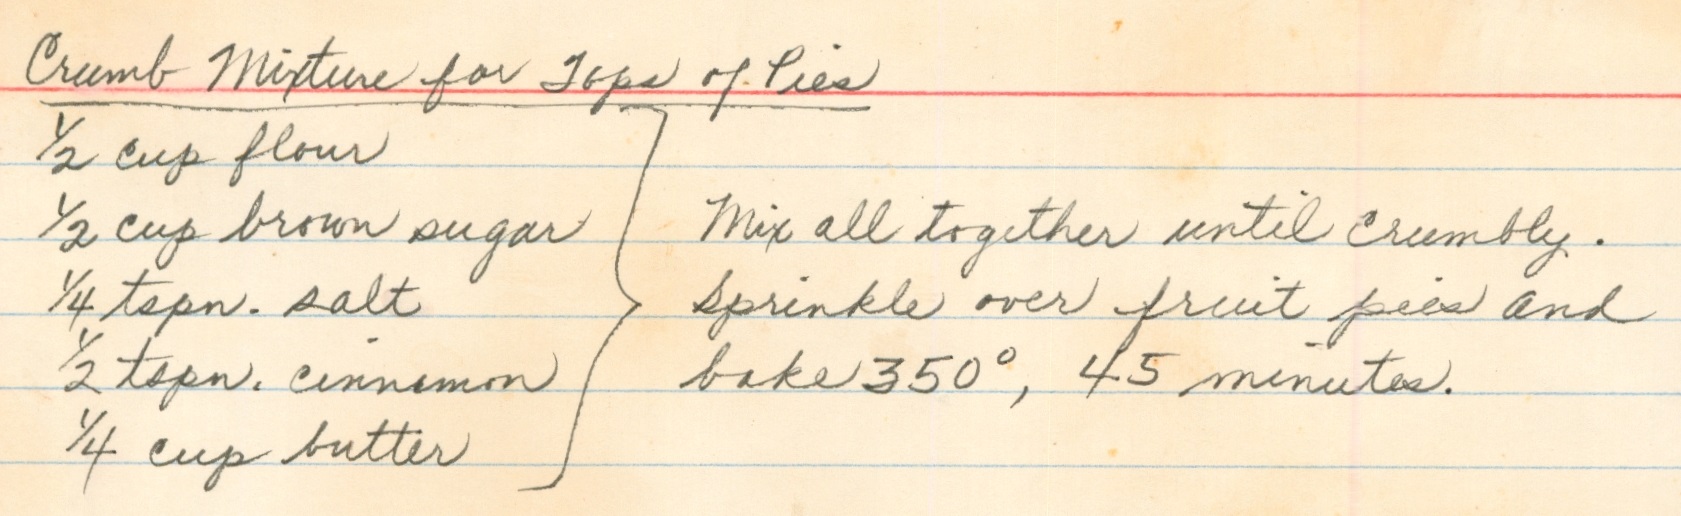 Crumb Mixture for Tops of Pies
1/2 cup flour
1/2 cup brown sugar
1/4 tspn. salt
1/2 tspn. cinnamon
1/4 cup butter
Mix all together until crumbly.
Sprinkle over fruit pies and
bake 350°, 45 minutes.